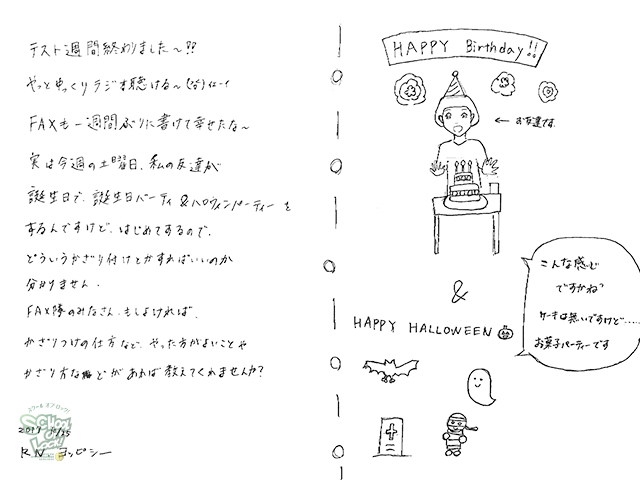 テスト週間終わりました〜!!
やっとゆっくりラジオ聴ける〜
FAXも一週間ぶりに書けて幸せだな〜
実は今週の土曜日、私の友達が
誕生日で、誕生日パーティ&ハロウィンパーティーを
するんですけど、はじめてするので、
どういうかざり付けとかすればいいのか
分かりません。
FAX隊のみなさん、もしよければ、
かざりつけの仕方など、やった方がよいことや
かざり方などがあれば教えてくれませんか?
スクールオブロック!
SCHOOL OF LOCK!
10/25
RN ヨッピシー
HAPPY Birthday!!
← お友達です。
&
HAPPY HALLOWEEN
こんな感じ
ですかね?
ケーキは無いですけど……
お菓子パーティーです